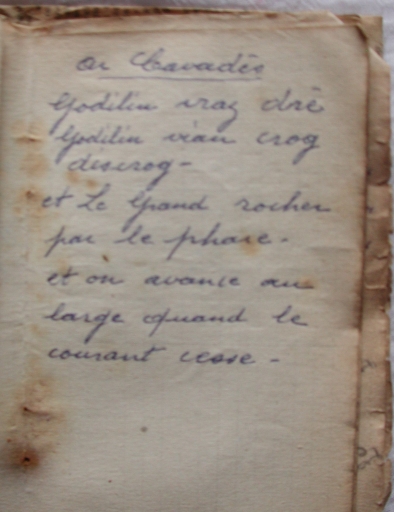 ar Cavadès
Godilin vraz drè
Godilin vian crog
discrog -
et Le Grand rocher
par le phare -
et on avance au
large quand le
courant cesse -